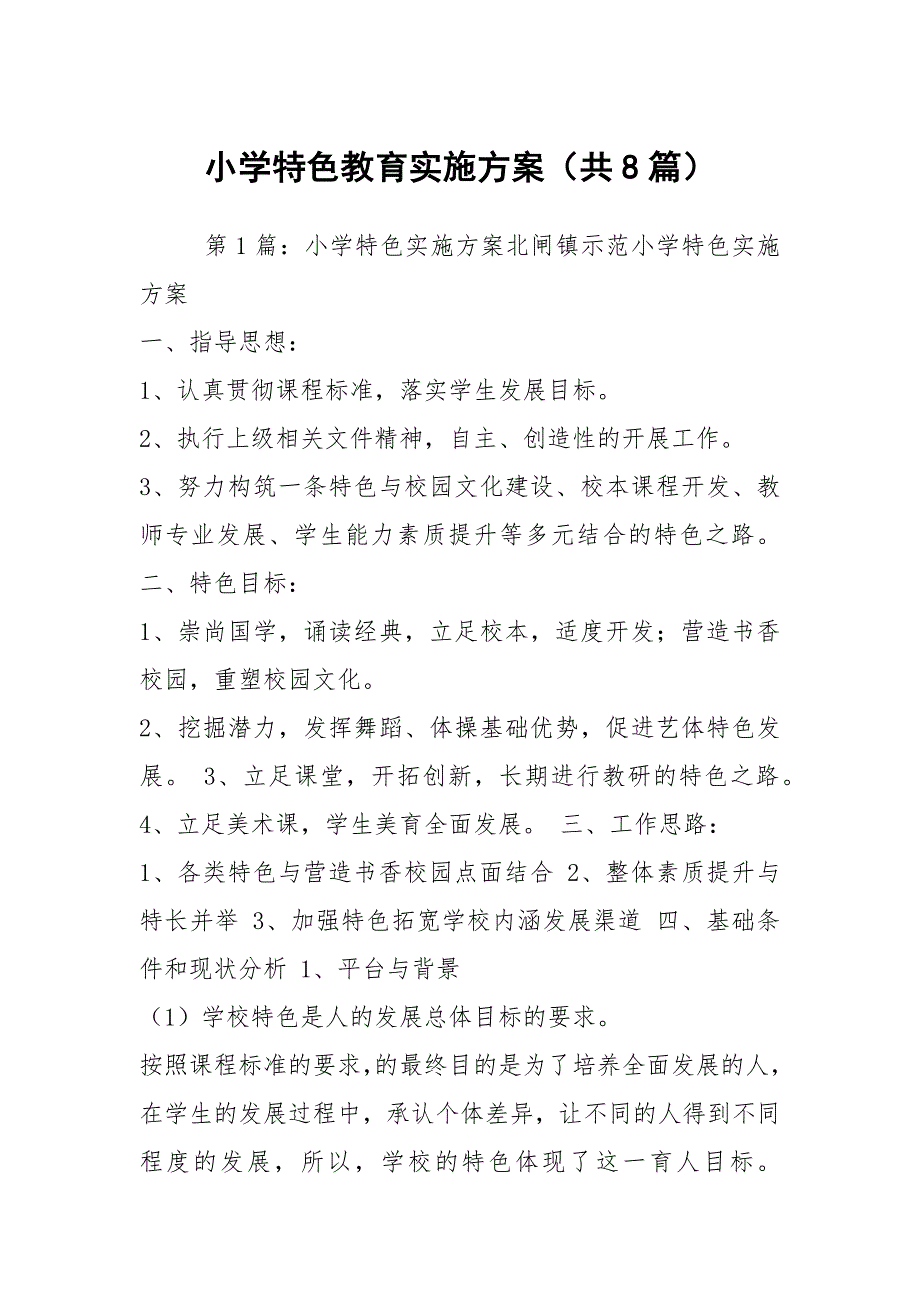 小学特色教育实施方案（共8篇）
第1篇：小学特色实施方案北闸镇示范小学特色实施
方案
一、指导思想：
1、认真贯彻课程标准，落实学生发展目标。
2、执行上级相关文件精神，自主、创造性的开展工作。
3、努力构筑一条特色与校园文化建设、校本课程开发、教
师专业发展、学生能力素质提升等多元结合的特色之路。
二、特色目标：
1、崇尚国学，诵读经典，立足校本，适度开发；营造书香
校园，重塑校园文化。
2、挖掘潜力，发挥舞蹈、体操基础优势，促进艺体特色发
展。 3、立足课堂，开拓创新，长期进行教研的特色之路。
4、立足美术课，学生美育全面发展。 三、工作思路：
1、各类特色与营造书香校园点面结合 2、整体素质提升与
特长并举 3、加强特色拓宽学校内涵发展渠道 四、基础条
件和现状分析 1、平台与背景
（1）学校特色是人的发展总体目标的要求。
按照课程标准的要求，的最终目的是为了培养全面发展的人，
在学生的发展过程中，承认个体差异，让不同的人得到不同
程度的发展，所以，学校的特色体现了这一育人目标。